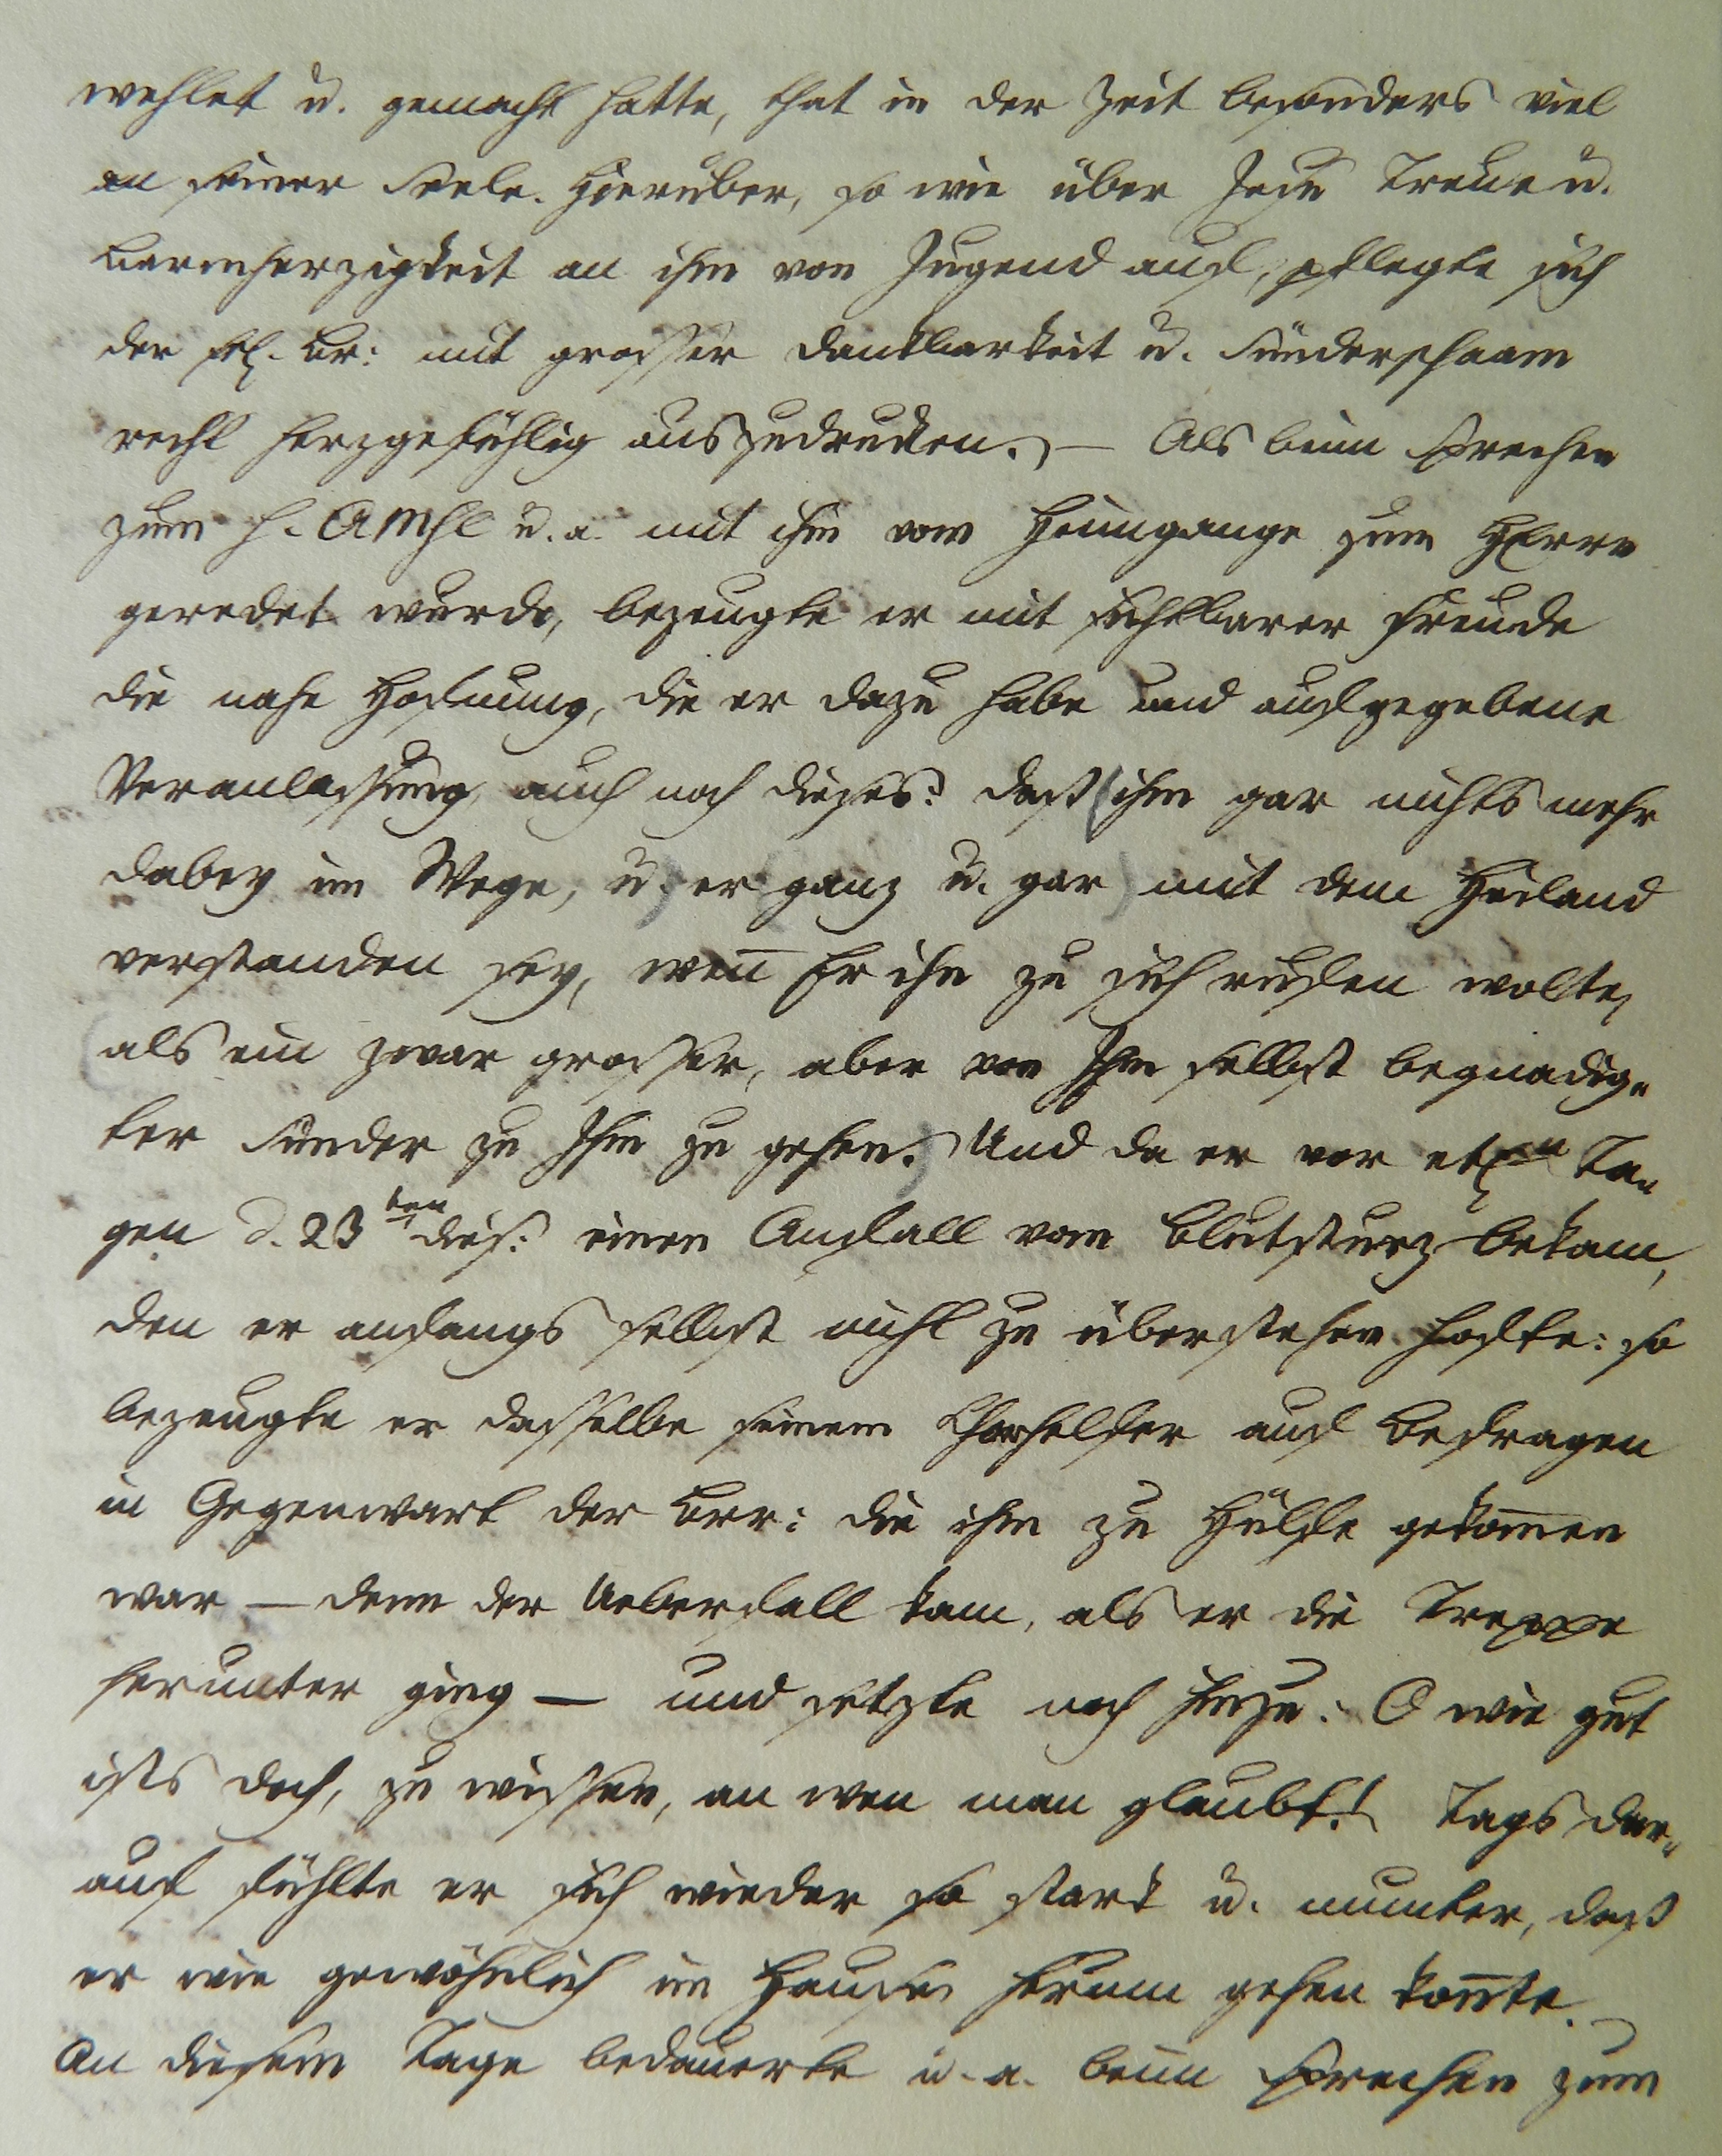 wehlet u. gemacht hatte, that in der Zeit besonders viel
an seiner Seele. Hierüber, so wie über Jesu Treue u.
Barmherzigkeit an ihm von Jugend auf, pflegte sich
der sel. Br: mit grosser Dankbarkeit u. Sünderschaam
recht herzgefühlig auszudrucken. — Als beim Sprechen
zum h. Abmhl u. a. mit ihm vom Heimgange zum HErrn
geredet wurde, bezeugte er mit sichtbarer Freude
die nahe Hofnung, die er dazu habe und auf gegebene
Veranlassung auch noch dieses: daß ihm gar nichts mehr
dabey im Wege, u. er ganz u. gar mit dem Heiland
verstanden sey, wen̄ Er ihn zu sich rufen wolte,
als ein zwar grosser, aber von Ihm selbst begnadig„
ter Sünder zu Ihm zu gehen. Und da er vor etl.n Ta„
gen d. 23ten dies: einen Anfall vom Blutsturz bekam,
den er anfangs selbst nicht zu überstehen hofte: so
bezeugte er dasselbe seinem Chorhelfer auf Befragen
in Gegenwart der Brr: die ihm zu Hülfe gekom̄en
war — denn der Ueberfall kam, als er die Treppe
herunter ging — und setzte noch hinzu: O wie gut
ists doch, zu wissen, an wen man glaubt! Tags dar„
auf fühlte er sich wieder so stark u. munter, daß
er wie gewöhnlich im Hause herum gehen kon̄te.
An diesem Tage bedauerte u. a. beim Sprechen zum